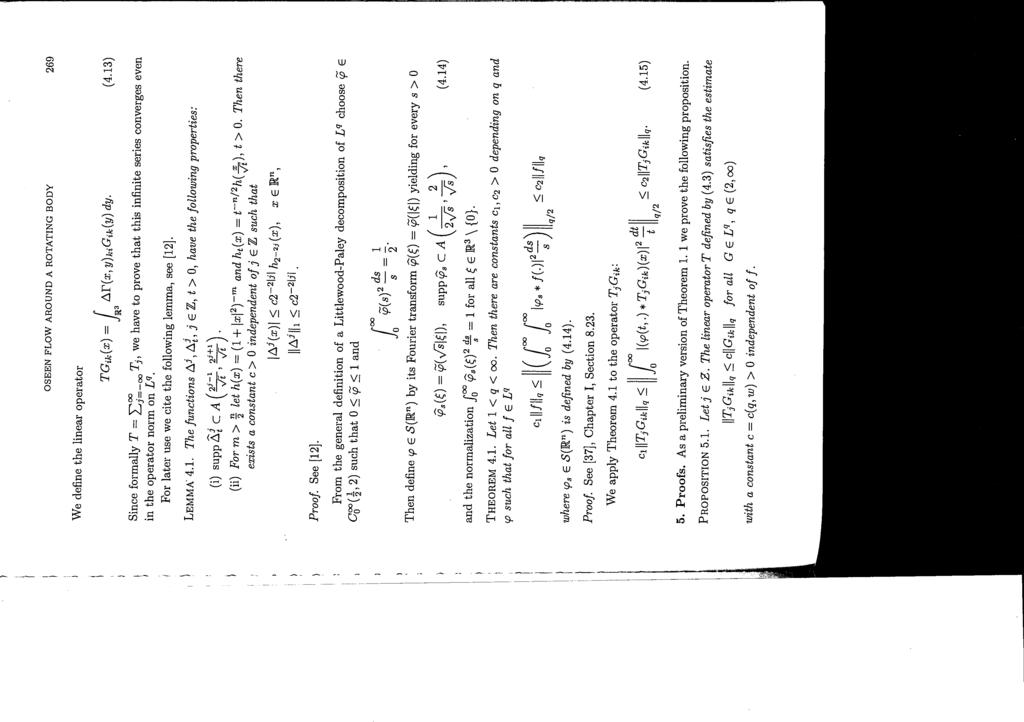 OSEEN FLOW AROUND A ROTATING BODY 269
We define the linear operator
TG_{ik}(x) = ∫_{ℝ³} ΔΓ(x, y)_{ki}G_{ik}(y) dy. (4.13)
Since formally T = ∑_{j=-∞}^{∞} T_j, we have to prove that this infinite series converges even
in the operator norm on L^q.
For later use we cite the following lemma, see [12].
LEMMA 4.1. The functions Δ^j, Δ^j_t, j ∈ Z, t > 0, have the following properties:
(i) supp Δ̂^j_t ⊂ A(2^{j-1}/√t, 2^{j+1}/√t).
(ii) For m > n/2 let h(x) = (1 + |x|²)^{-m} and h_t(x) = t^{-n/2}h(x/√t), t > 0. Then there
exists a constant c > 0 independent of j ∈ Z such that
|Δ^j(x)| ≤ c2^{-2|j|} h_{2^{-2j}}(x), x ∈ ℝⁿ,
‖Δ^j‖₁ ≤ c2^{-2|j|}.
Proof. See [12].
From the general definition of a Littlewood-Paley decomposition of L^q choose φ̃ ∈
C₀^∞(½, 2) such that 0 ≤ φ̃ ≤ 1 and
∫₀^∞ φ̃(s)² ds/s = 1/2.
Then define φ ∈ S(ℝⁿ) by its Fourier transform φ̂(ξ) = φ̃(|ξ|) yielding for every s > 0
φ̂_s(ξ) = φ̃(√s|ξ|), supp φ̂_s ⊂ A(1/(2√s), 2/√s), (4.14)
and the normalization ∫₀^∞ φ̂_s(ξ)² ds/s = 1 for all ξ ∈ ℝ³ \ {0}.
THEOREM 4.1. Let 1 < q < ∞. Then there are constants c₁, c₂ > 0 depending on q and
φ such that for all f ∈ L^q
c₁‖f‖_q ≤ ‖(∫₀^∞ ∫₀^∞ |φ_s ∗ f(.)|² ds/s)‖_{q/2} ≤ c₂‖f‖_q
where φ_s ∈ S(ℝⁿ) is defined by (4.14).
Proof. See [37], Chapter I, Section 8.23.
We apply Theorem 4.1 to the operator T_jG_{ik}:
c₁‖T_jG_{ik}‖_q ≤ ‖∫₀^∞ |(φ(t, .) ∗ T_jG_{ik})(x)|² dt/t‖_{q/2} ≤ c₂‖T_jG_{ik}‖_q. (4.15)
5. Proofs. As a preliminary version of Theorem 1.1 we prove the following proposition.
PROPOSITION 5.1. Let j ∈ Z. The linear operator T defined by (4.3) satisfies the estimate
‖T_jG_{ik}‖_q ≤ c‖G_{ik}‖_q for all G ∈ L^q, q ∈ (2, ∞)
with a constant c = c(q, w) > 0 independent of f.